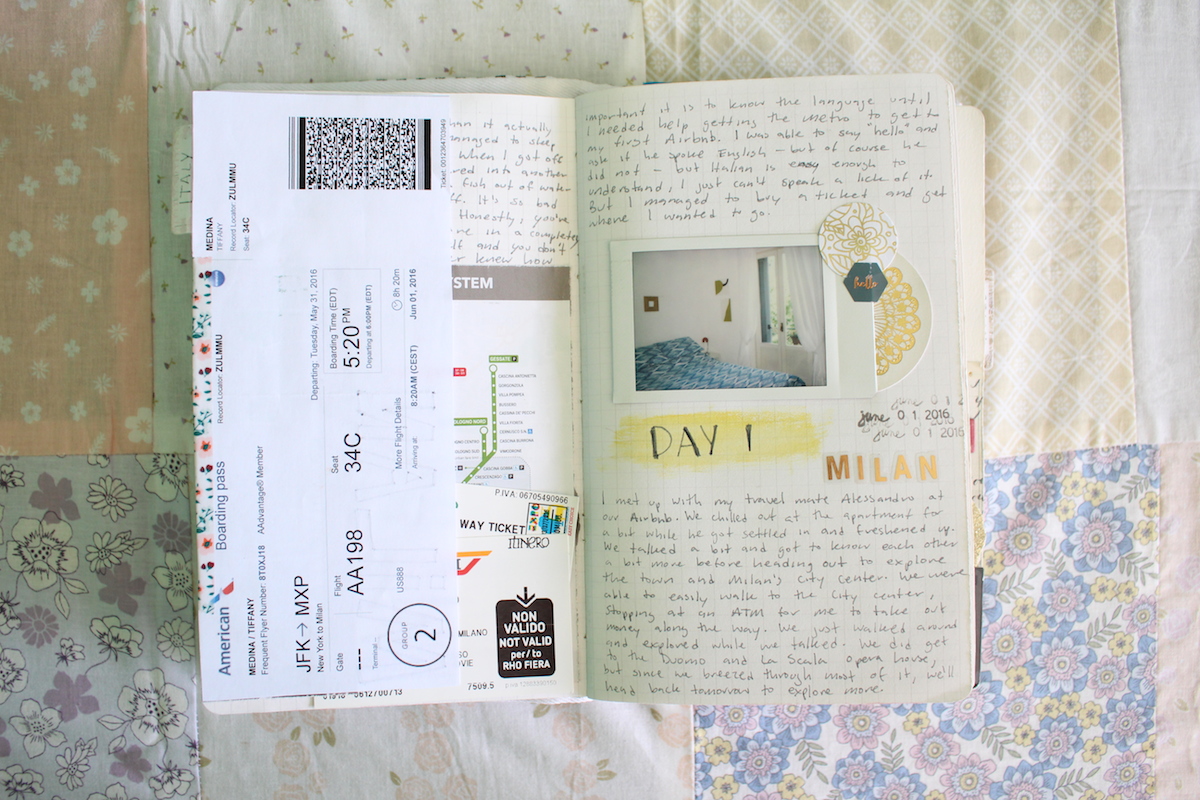 ITALY
American
Boarding pass
Record Locator: ZULMMU
MEDINA / TIFFANY
Frequent Flyer Number: 8T0XJ18 AAdvantage® Member
JFK→MXP
New York to Milan
Departing: Tuesday, May 31, 2016
Gate
---
Terminal:--
Flight
AA198
Seat
34C
Boarding Time (EDT)
5:20 PM
Departing at 6:00PM (EDT)
GROUP
2
US888
More Flight Details
8h 20m
Arriving at:
8:20AM (CEST)
Jun 01, 2016
MEDINA
TIFFANY
Record Locator: ZULMMU
Seat: 34C
Ticket: 0012364703949
han it actually
managed to sleep
When I got off
red into another
fish out of water
ff. It's so bad
Honestly, you're
in a completely
lf and you don't
er knew how
STEM
GESSATE P
CASCINA ANTONIETTA
GORGONZOLA
VILLA POMPEA
BUSSERO
CASSINA DE' PECCHI
VILLA FIORITA
CERNUSCO S.N.
CASCINA BURRONA
VIMODRONE
COLOGNO NORD
COLOGNO CENTRO
COLOGNO SUD
CASCINA GOBBA P
CRESCENZAGO
P.IVA: 06705490966
WAY TICKET
EXPO
itINERO
NON
VALIDO
NOT VALID
per/to
RHO FIERA
MILANO
7509.5
important it is to know the language until
I needed help getting the metro to get to
my first Airbnb. I was able to say "hello" and
ask if he spoke English – but of course he
did not – but Italian is easy enough to
understand, I just can't speak a lick of it.
But I managed to buy a ticket and get
where I wanted to go.
hello
june 0 1 2
june 0 1 2016
june 0 1 2016
DAY 1
MILAN
I met up with my travel mate Alessandro at
our Airbnb. We chilled out at the apartment for
a bit while he got settled in and freshened up.
We talked a bit and got to know each other
a bit more before heading out to explore
the town and Milan's City Center. We were
able to easily walk to the City center,
stopping at an ATM for me to take out
money along the way. We just walked around
and explored while we talked. We did get
to the Duomo and La Scala opera house,
but since we breezed through most of it, we'll
head back tomorrow to explore more.